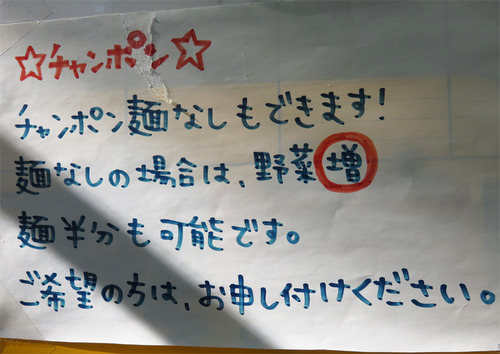 ☆チャンポン☆
チャンポン麺なしもできます!
麺なしの場合は、野菜増
麺半分も可能です。
ご希望の方は、お申し付けください。